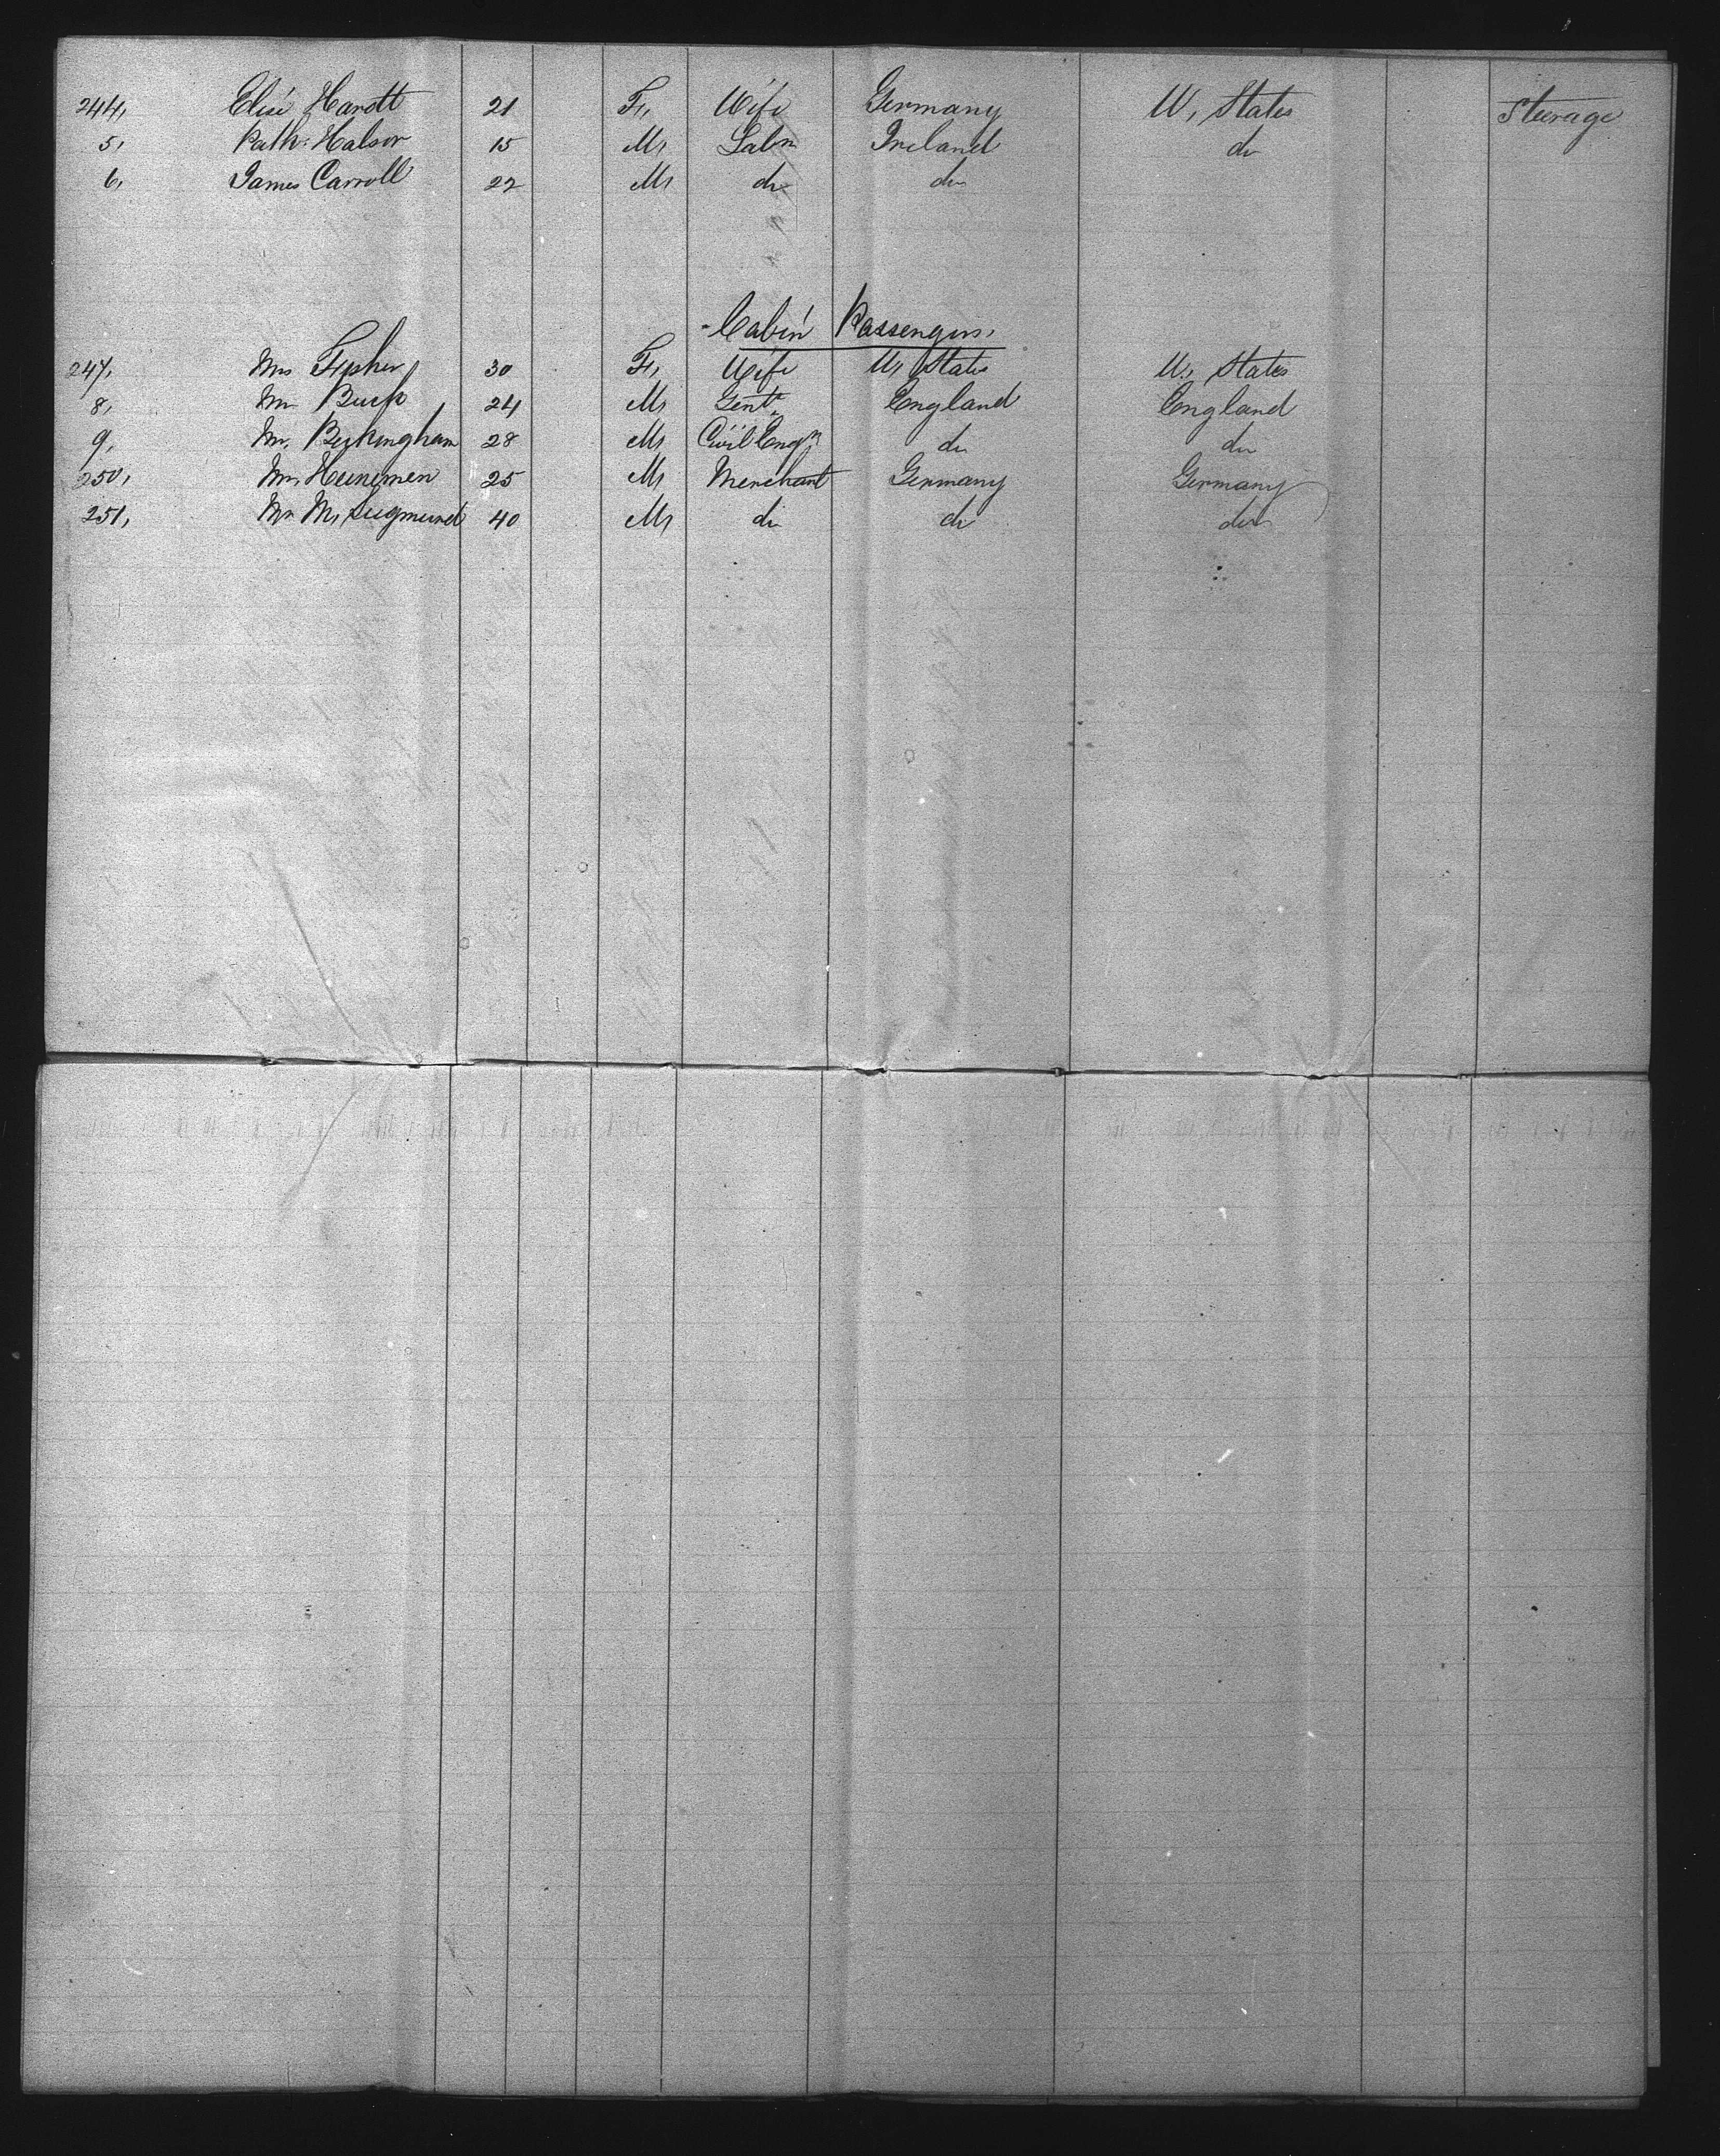 244, Elise Harott 21 F, Wife Germany U, States Steerage
5, Path: Halsor 15 M, Labr Ireland do
6, James Carroll 22 M, do do
Cabin Passengers.
247, Mrs Fisher 30 F, Wife U, States U, States
8, Mr Buck 24 M, Gent. England England
9, Mr. Beckingham 28 M, Civil Engr do do
250, Mr. Heinemen 25 M, Merchant Germany Germany
251, Mr M, Siegmund 40 M, do do do